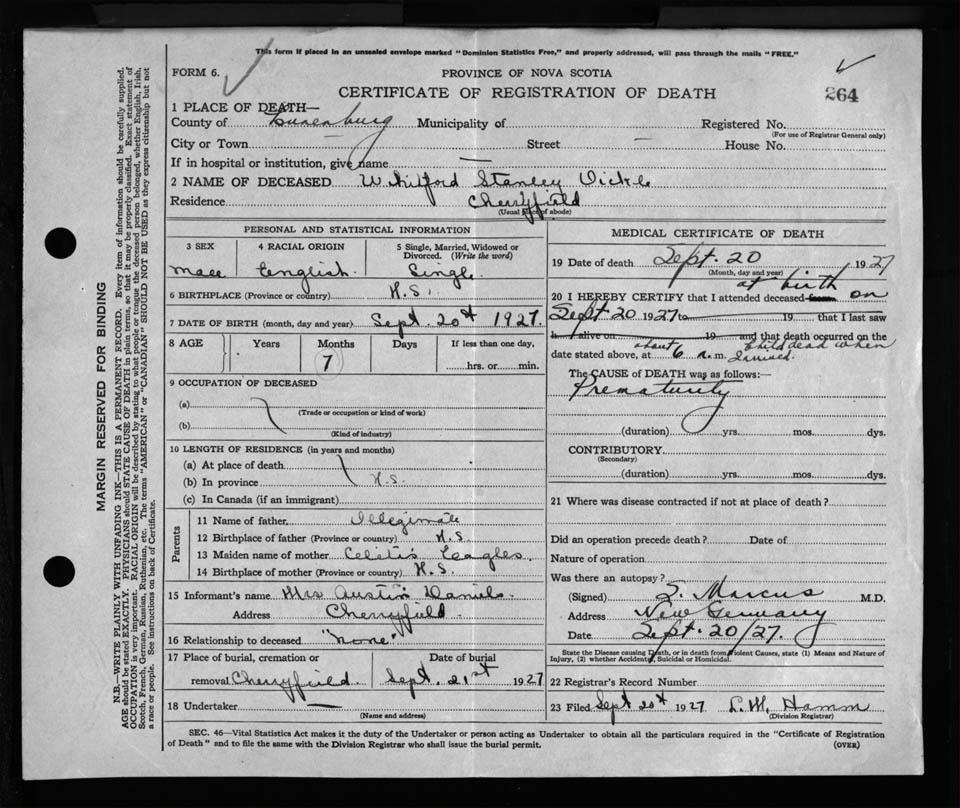 This form if placed in an unsealed envelope marked "Dominion Statistics Free," and properly addressed, will pass through the mails "FREE."
FORM 6.
PROVINCE OF NOVA SCOTIA
CERTIFICATE OF REGISTRATION OF DEATH
264
1 PLACE OF DEATH—
County of Lunenburg Municipality of Registered No.
(For use of Registrar General only)
City or Town — Street — House No.
If in hospital or institution, give name —
2 NAME OF DECEASED Stanley
Residence Cherryfield
(Usual place of abode)
PERSONAL AND STATISTICAL INFORMATION
3 SEX 4 RACIAL ORIGIN 5 Single, Married, Widowed or Divorced. (Write the word)
Male English Single
6 BIRTHPLACE (Province or country) N.S.
7 DATE OF BIRTH (month, day and year) Sept. 20th 1927.
8 AGE Years Months Days If less than one day,
7 hrs. or min.
9 OCCUPATION OF DECEASED
(a)
(Trade or occupation or kind of work)
(b)
(Kind of industry)
10 LENGTH OF RESIDENCE (in years and months)
(a) At place of death
(b) In province N.S.
(c) In Canada (if an immigrant)
Parents
11 Name of father
12 Birthplace of father (Province or country) N.S.
13 Maiden name of mother
14 Birthplace of mother (Province or country) N.S.
15 Informant's name Mrs Austin Daniels
Address Cherryfield
16 Relationship to deceased "None."
17 Place of burial, cremation or Date of burial
removal Cherryfield Sept. 21st 1927
18 Undertaker —
(Name and address)
MEDICAL CERTIFICATE OF DEATH
19 Date of death Sept. 20 1927
(Month, day and year)
at birth
20 I HEREBY CERTIFY that I attended deceased from on
Sept 20 1927 to 19 that I last saw
h alive on 19 and that death occurred on the
about child dead when
date stated above, at 6 a.m. I arrived.
The CAUSE OF DEATH was as follows:—
Prematurity
(duration) yrs. mos. dys.
CONTRIBUTORY
(Secondary)
(duration) yrs. mos. dys.
21 Where was disease contracted if not at place of death?
Did an operation precede death? Date of
Nature of operation
Was there an autopsy?
(Signed) Marcus M.D.
Address New Germany
Date Sept. 20/27.
State the Disease causing Death, or in death from Violent Causes, state (1) Means and Nature of
Injury, (2) whether Accidental, Suicidal or Homicidal.
22 Registrar's Record Number
23 Filed Sept 20th 1927 L. M. Hamm
(Division Registrar)
SEC. 46—Vital Statistics Act makes it the duty of the Undertaker or person acting as Undertaker to obtain all the particulars required in the "Certificate of Registration
of Death" and to file the same with the Division Registrar who shall issue the burial permit.
(OVER)
MARGIN RESERVED FOR BINDING
N.B.—WRITE PLAINLY WITH UNFADING INK—THIS IS A PERMANENT RECORD. Every item of information should be carefully supplied.
AGE should be stated EXACTLY. PHYSICIANS should STATE CAUSE OF DEATH in plain terms, so that it may be properly classified. Exact statement of
OCCUPATION is very important. RACIAL ORIGIN will be described by stating to what people or tongue the deceased person belonged, whether English, Irish,
Scotch, French, German, Russian, Ruthenian, etc. The terms "AMERICAN" or "CANADIAN" SHOULD NOT BE USED as they express citizenship but not
a race or people. See instructions on back of Certificate.